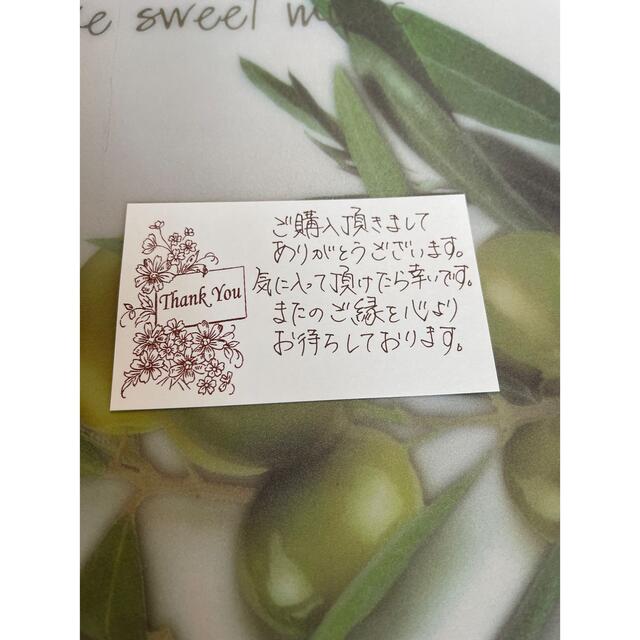 sweet
ご購入頂きまして
ありがとうございます。
気に入って頂けたら幸いです。
またのご縁を心より
お待ちしております。
Thank You